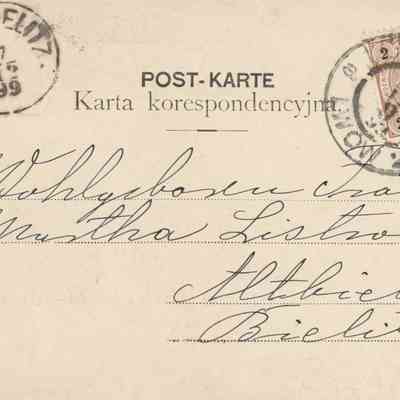 ELITZ.
7
99
2
POST-KARTE
Karta korespondencyjna.
LWOW
2
Wohlgeboren
Martha Listro
Altbie
Bieli